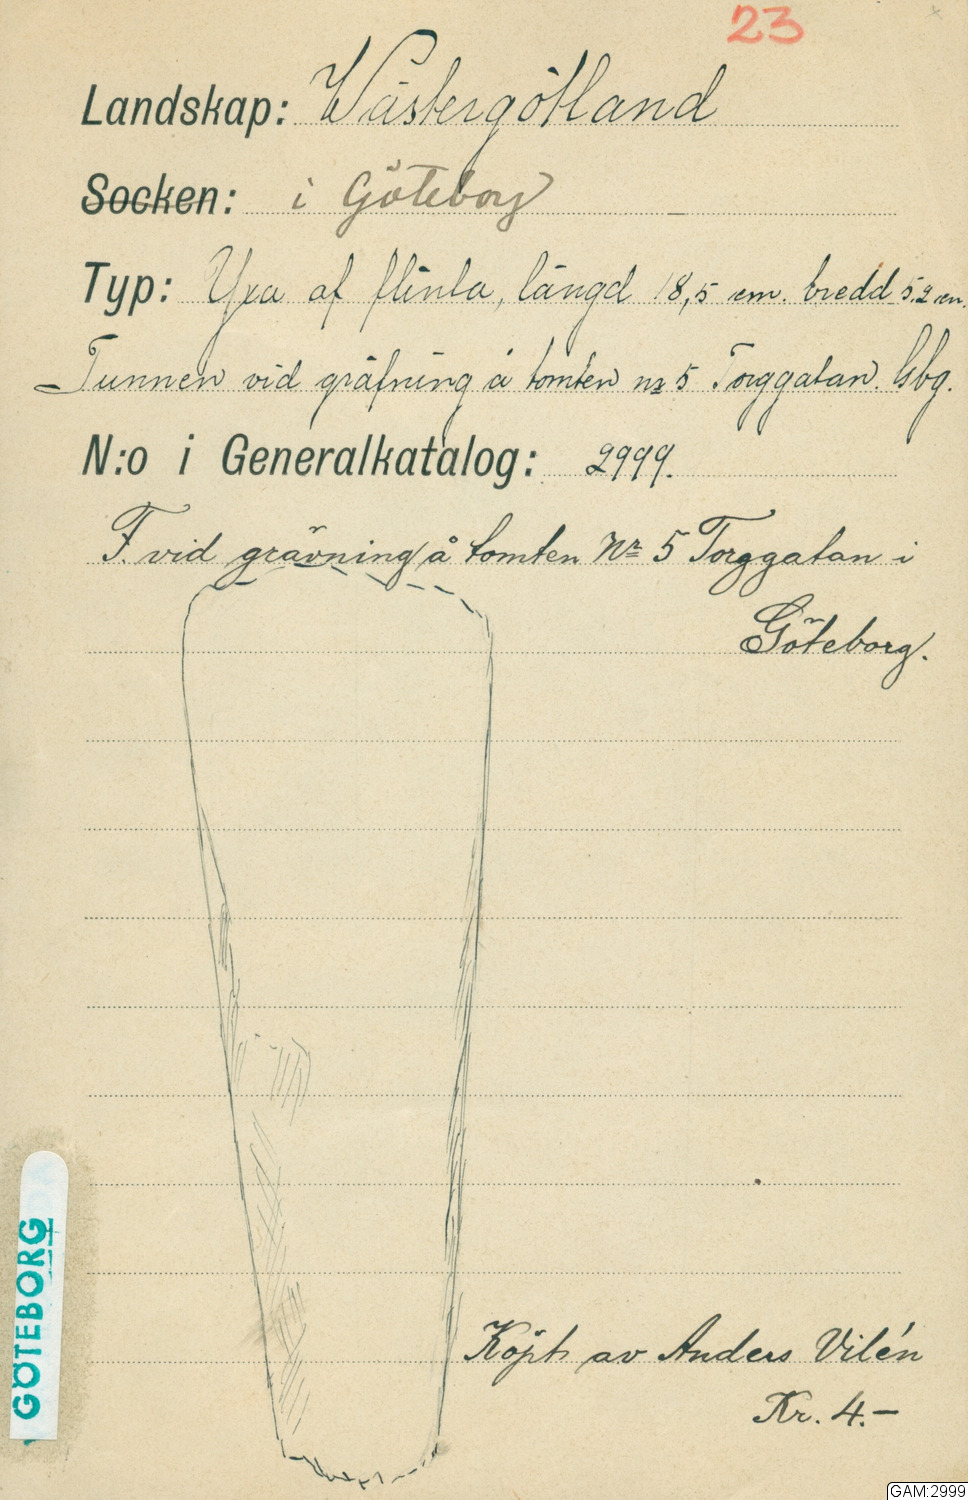 23
Landskap: Västergötland
Socken: i Göteborg
Typ: Yxa af flinta, längd 18,5 cm. bredd 5,2 cm.
Funnen vid gräfning å tomten nr 5 Torggatan. Gbg.
N:o i Generalkatalog: 2999.
F. vid grävning å tomten Nr 5 Torggatan i
Göteborg.
GÖTEBORG
Köpt av Anders Vilén
Kr. 4.-
GAM:2999